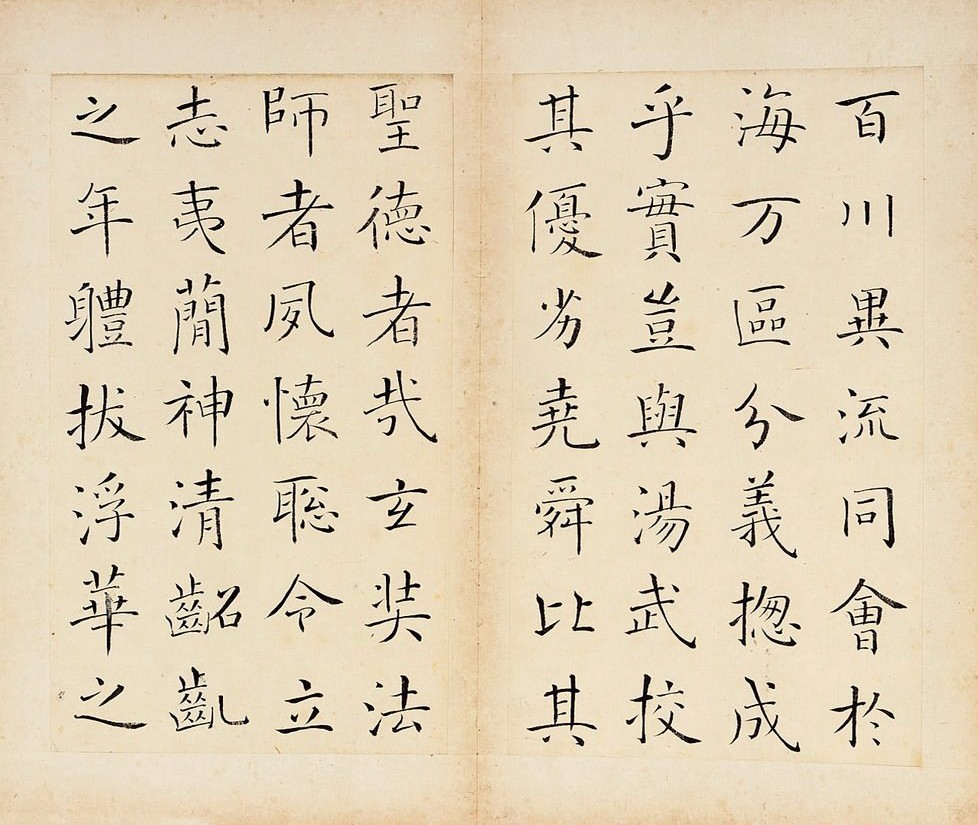 百川異流同會於
海万區分義揔成
乎實豈與湯武挍
其優劣堯舜比其
聖德者㢤玄奘法
師者夙懷聡令立
志夷簡神清齠齓
之年軆拔浮華之